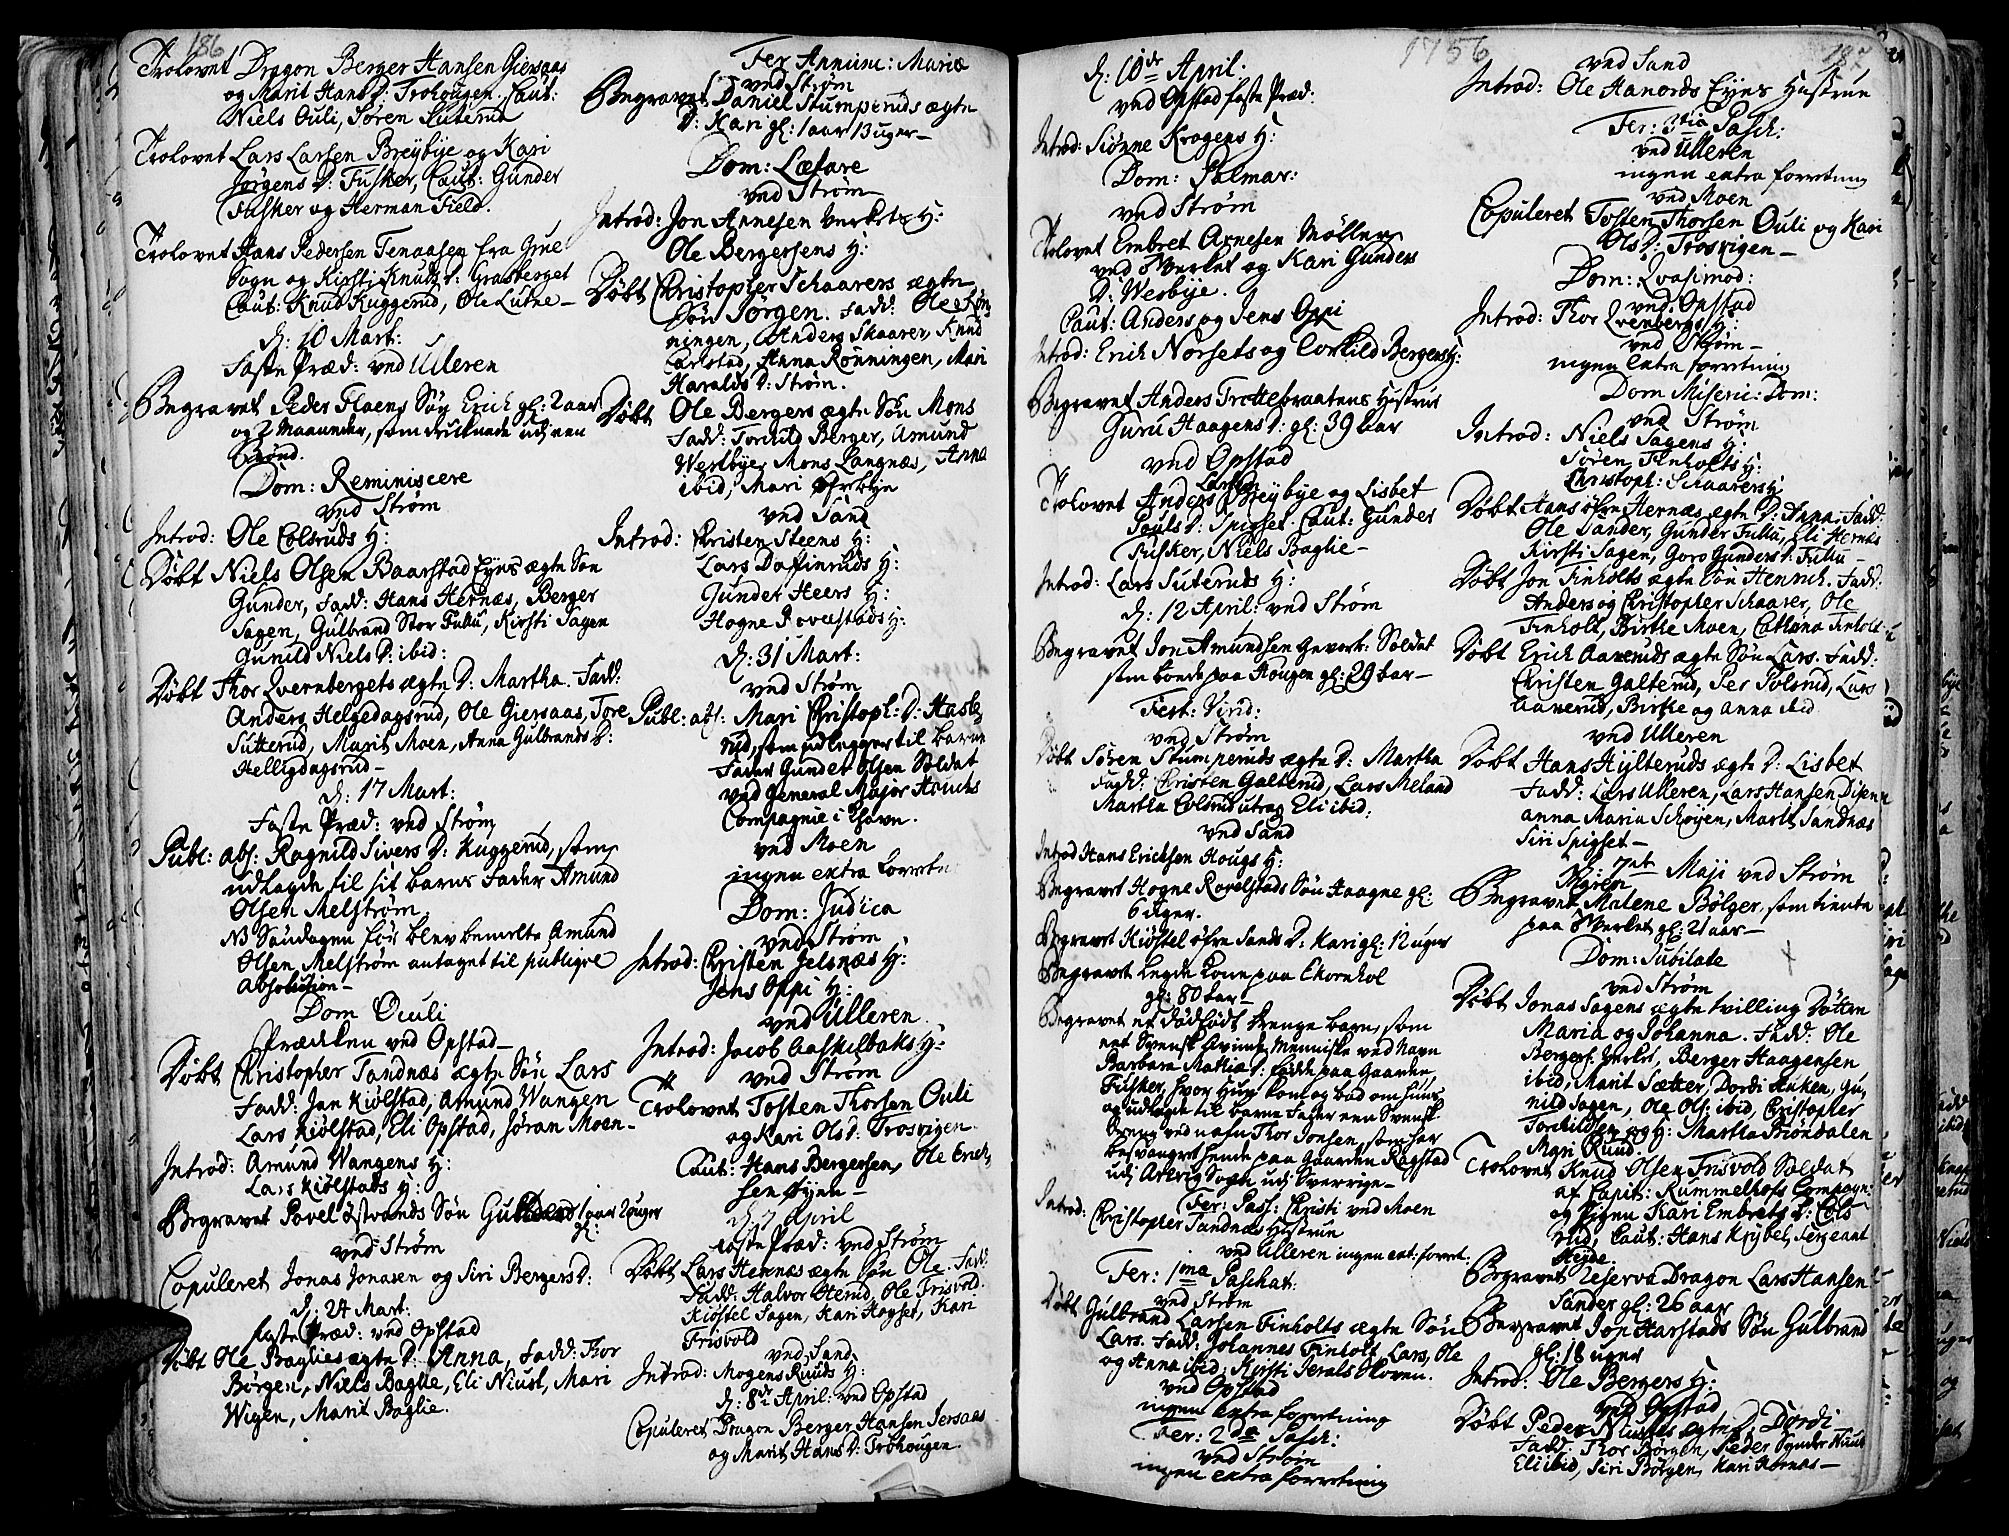 186
Trolovet Dragon Berger Hansen Giersaas
og Marit Hans D: Trohougen. Caut:
Niels Ouli, Søren Suterud
Trolovet Lars Larsen Breybye og Kari
Jørgens D: Fusker, Caut: Gunder
Fusker og Herman Field.
Trolovet Hans Pedersen Tenaasen fra Grue
Sogn og Kirsti Knuds D: Grasberget
Caut: Knud Kuggerud, Ole Lutne
d: 10 Mart:
Faste Præd: ved Ulleren
Begravet Peder Floens Søn Erich gl: 2 aar
og 2 Maaneder, som druknede udj een
Brønd.
Dom: Reminiscere
ved Strøm
Introd: Ole Colsruds H:
Døbt Niels Olsen Baarstad Eyes ægte Søn
Gunder, Fadd: Hans Hernæs, Berger
Sagen, Gulbrand Stor Fuhu, Kirsti Sagen
Gunild Niels D: ibid:
Døbt Thor Qvernbergets ægte D: Martha. Fadd:
Anders Helgedagsrud, Ole Giersaas, Tore
Sutterud, Marit Moen, Anna Gulbrands D:
Helligdagsrud
d: 17 Mart:
Faste Præd: ved Strøm
Publ: abs: Ragnild Sivers D: Kuggerud, som
udlagde til sit barns Fader Amund
Olsen Melstrøm
NB Søndagen før blev bemelte Amund
Olsen Melstrøm antaget til publique
Absolution
Dom Oculi
Prædiken ved Opstad
Døbt Christopher Sandnæs ægte Søn Lars
Fadd: Jan Kiølstad, Amund Wangen
Lars Kiølstad, Eli Opstad, Jøran Moen
Introd: Amund Wangens H:
Lars Kiølstads H:
Begravet Povel Østvands Søn 1 aar 2 uger
gl:
ved Strøm
Copuleret Jonas Jonasen og Siri Bergers D:
d: 24 Mart:
Faste Præd: ved Opstad
Døbt Ole Baglies ægte D: Anna, Fadd: Thor
Børgen, Niels Baglie, Eli Niust, Mari
Wigen, Marit Baglie.
Fer Annunc: Mariæ
ved Strøm
Begravet Daniel Stumperuds ægte
D: Kari gl: 1 aar 13 uger
Dom: Lætare
ved Strøm
Introd: Jon Arnesen Verkets H:
Ole Bergersens H:
Døbt Christopher Schaarers ægte
Søn Jørgen. Fadd: Ole Røn
ningen, Anders Skaarer, Knud
Carlstad, Anna Rønningen, Mari
Haralds D: Strøm.
Døbt Ole Bergers ægte Søn Mons
Fadd: Torchild Berger, Amund
Westbye, Mons Langnæs, Anna
ibid, Mari
ved Sand
Introd: Christen Steens H:
Lars Daffinruds H:
Gunder Heers H:
Hogne Rovelstads H:
d: 31 Mart:
ved Strøm
Publ: abs: Mari Christoph: D: Hasle
rud, som udlegger til barne
Fader Gunder Olsen Soldat
ved General Major
Compagnie
ved Moen
ingen extra forretn
Dom: Judica
ved Strøm
Introd: Christen Jelsnæs H:
Jens Oppi H:
ved Ulleren.
Introd: Jacob Aaskilbaks H:
ved Strøm
Trolovet Tosten Thorsen Ouli
og Kari Ols D: Trosvigen.
Caut: Hans Bergersen, Ole Erich
sen
d: 7 April
Faste Præd: ved Strøm
Døbt Lars Hernæs ægte Søn Ole. Fad:
Fadd: Halvor Herud, Ole Frisvold.
Kiøstel Sagen, Kari Hogset, Kari
Frisvold
ved Sand
Introd: Mogens Ruuds H:
d: 8de April: ved Opstad
Copuleret Dragon Berger Hansen Jersaas
og Marit Hans D: Trohougen.
1756
187
d: 10de April:
ved Opstad faste Præd:
Introd: Siønne Krogens H:
Dom: Palmar:
ved Strøm
Trolovet Embret Arnesen Møller
ved Verket og Kari Gunders
D: Wesbye.
Caut: Anders og Jens Oppi
Introd: Erich Norsets og Torkild Bergers H:
Begravet Anders Trottebraatens Hustrue
Guru Haagens D: gl: 39 aar
ved Opstad
Larsen
Trolovet Anders Breybye og Lisbet
Pouls D: Spigset. Caut: Gunder
Fusker, Niels Baglie
Introd: Lars Suteruds H:
d: 12 April: ved Strøm
Begravet Jon Amundsen Gevorb: Soldat
som boede paa Hougen gl: 29 aar
Fest: Virid:
ved Strøm
Døbt Søren Stumperuds ægte D: Martha
Fadd: Christen Galterud, Lars Meland
Martha Colsrud Eli ibid:
ved Sand
Introd Hans Ericksen Hougs H:
Begravet Hogne Rovelstads Søn Haagne gl:
6 uger.
Begravet Kiøstel øfre Sands D: Kari gl: 12 uger
Begravet Legde Kone paa Ekornhol
gl: 80 aar
Begravet et dødfødt drenge barn, som
eet Svensk Qvinde Menniske ved Navn
Barbara Mathias D: fødde paa Gaarden
Fusker, hvor Hun kom og bad om Huus
og udlagde til barne Fader een Svensk
Dreng ved nafn Thor Jonsen, som har
besvangret hende paa Gaarden Ragstad
udj Aarvig Sogn udj Sverrige
Fer: Pass: Christi ved Moen
Introd: Christopher Sandnæs Hustrue
ved Ulleren ingen ext: forret:
Fer: 1ma Paschat:
ved Strøm
Døbt Gulbrand Larsen Finholts ægte Søn
Lars. Fadd: Johannes Finholt, Lars, Ole
og Anna ibid: Kirsti Jerals Skoven.
ved Opstad
ingen extra forretning
Fer: 2da Pasch:
ved Strøm
ingen extra forretning
ved Sand
Introd: Ole Hanords Eyes Hustrue
Fer: 3tia Pasch:
ved Ulleren
ingen extra forretning
ved Moen
Copuleret Tosten Thorsen Ouli og Kari
Ols D: Trosvigen
Dom: Qvasimod:
ved Opstad
Introd: Thor Qvenbergs H:
ved Strøm
ingen extra forretning
Dom Miseric: Dom:
ved Strøm
Introd: Niels Sagens H:
Søren Finholts H:
Christoph: Schaarers H:
Døbt Hans øfre Hernæs ægte D: Anna. Fadd:
Ole Sander, Gunder Fuhu, Eli Hernæs
Kirsti Sagen, Goro Gunders D: Fuhu
Døbt Jon Finholts ægte Søn Henrich. Fadd:
Anders og Christopher Schaarer, Ole
Finholt, Birthe Moen, Cathrina Finholt
Døbt Erich Aaneruds ægte Søn Lars. Fadd:
Christen Galterud, Per Polsrud, Lars
Aanerud, Birthe og Anna ibid
ved Ulleren
Døbt Hans Hylteruds ægte D: Lisbet
Fadd: Lars Ulleren, Lars Hansen Disen
Anna Maria Schøyen, Marte Sandnæs
Siri Spigset
d: 7de Maji ved Strøm
Begravet Malene Bølger, som tiente
paa Verket gl: 21 aar
Dom: Jubilate
ved Strøm
Døbt Jonas Sagens ægte tvilling Døttre
Maria og Johanna. Fadd: Ole
Bergers: Verket, Berger Haagensen
ibid, Marit Sætter, Dordi Huken, Gu
nild Sagen, Ole Ols: ibid, Christopher
Torchildsen og H: Martha Brøndalen
Mari Ruud:
Trolovet Knud Olsen Frisvold Soldat
af Capit: Rummelhofs Compagn:
og Pigen Kari Embrets D: Cols
rud, Caut: Hans Krybel, Sergeant
Heyde
Begravet Reserve Dragon Lars Hansen
Sander gl: 26 aar
Begravet Jon Harstads Søn Gulbrand
gl: 18 uger
Introd: Ole Bergers H:
ved Opstad
Døbt Peder Niusts ægte D: Dordi
Fadd: Thor Børgen, Peder Gunder Niust
Eli ibid, Siri Børgen, Kari Hornæs